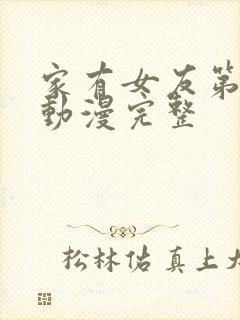 家有女友第
動漫完整
松林佑真上大